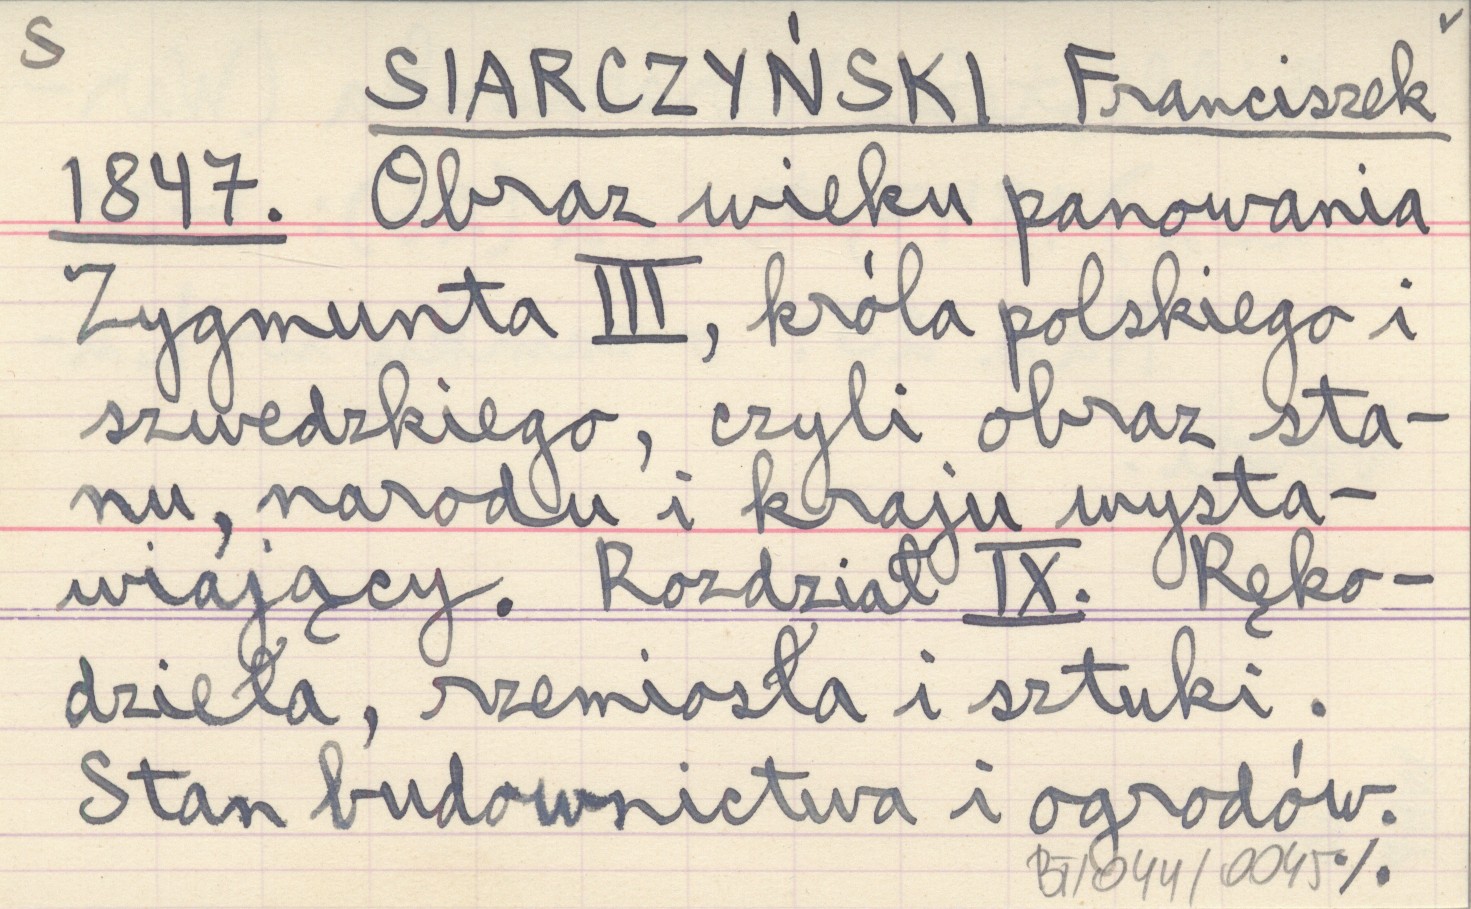 S
SIARCZYŃSKI Franciszek
1847. Obraz wieku panowania
Zygmunta III, króla polskiego i
szwedzkiego, czyli obraz sta-
nu, narodu i kraju wysta-
wiający. Rozdział IX. Ręko-
dzieła, rzemiosła i sztuki.
Stan budownictwa i ogrodów.
BT/044/0045 ./.